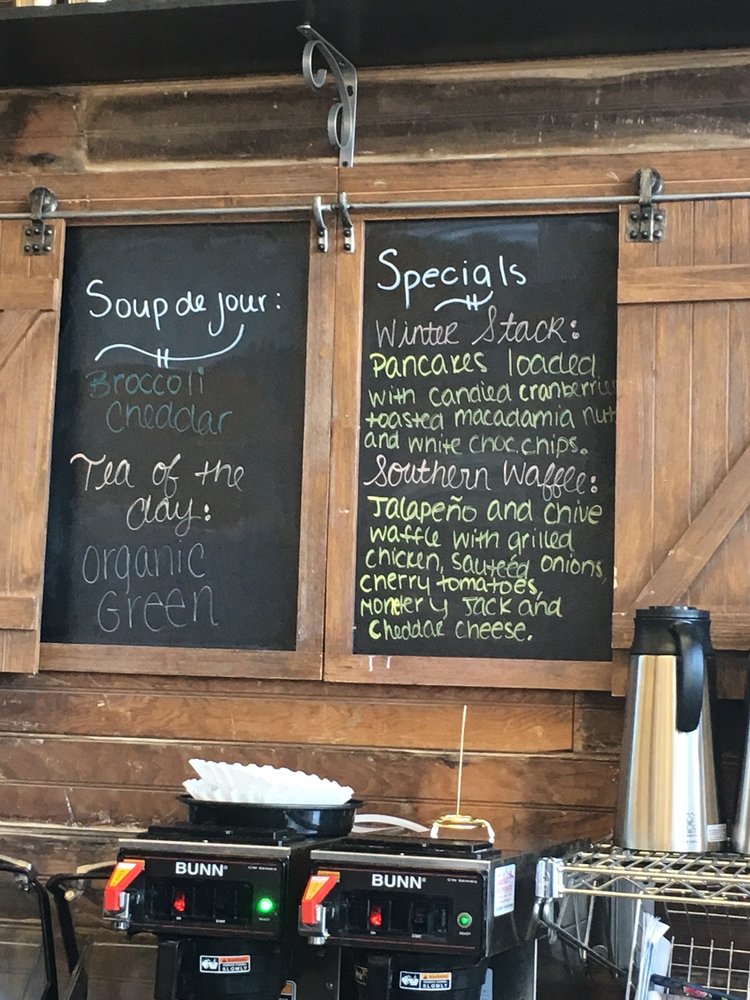 Soup de jour:
Broccoli
Cheddar
Tea of the
day:
organic
Green
Specials
Winter Stack:
Pancakes loaded
with candied cranberries
toasted macadamia nut
and white choc. chips.
Southern Waffle:
Jalapeño and chive
waffle with grilled
chicken, sauteéd onions,
cherry tomatoes,
Monterey Jack and
Cheddar cheese.
BUNN
BUNN
SLOWLY
SLOWLY